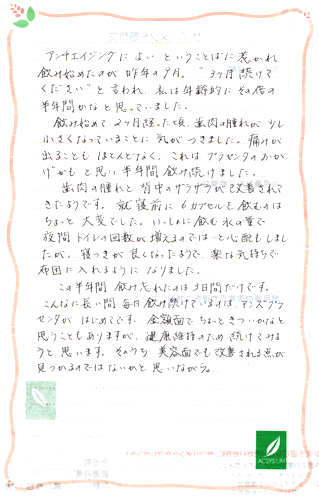 アンチエイジングに よい ということばに惹かれ
飲み始めたのが 昨年の9月。 "3ヶ月 続けて
ください" と言われ、私は年齢的に その倍の
半年間かなと思っていました。
飲み始めて 2ヶ月経った頃、歯肉の腫れが 少し
小さくなっていることに 気がつきました。痛みが
出ることも ほとんどなく、これは プラセンタのおか
げかもと思い 半年間 飲み続けました。
歯肉の腫れと 背中のザラザラが改善されて
きたようです。就寝前に 6カプセルを飲むのは
ちょっと 大変でした。いっしょに飲む水の量で
夜間トイレの回数が増えるのでは と心配もしまし
たが、寝つきが良くなったようで、楽な気持ちで
布団に入れるように なりました。
この半年間 飲み忘れたのは3日間だけです。
こんなに長い間 毎日飲み続けているのは
センタが はじめてです。金額面で ちょっときついかなと
思うこともありますが、健康維持のため 続けてみよ
うと 思います。そのうち 美容面でも 改善される点が
見つかるのでは ないかと思いながら。
ACSYSUN